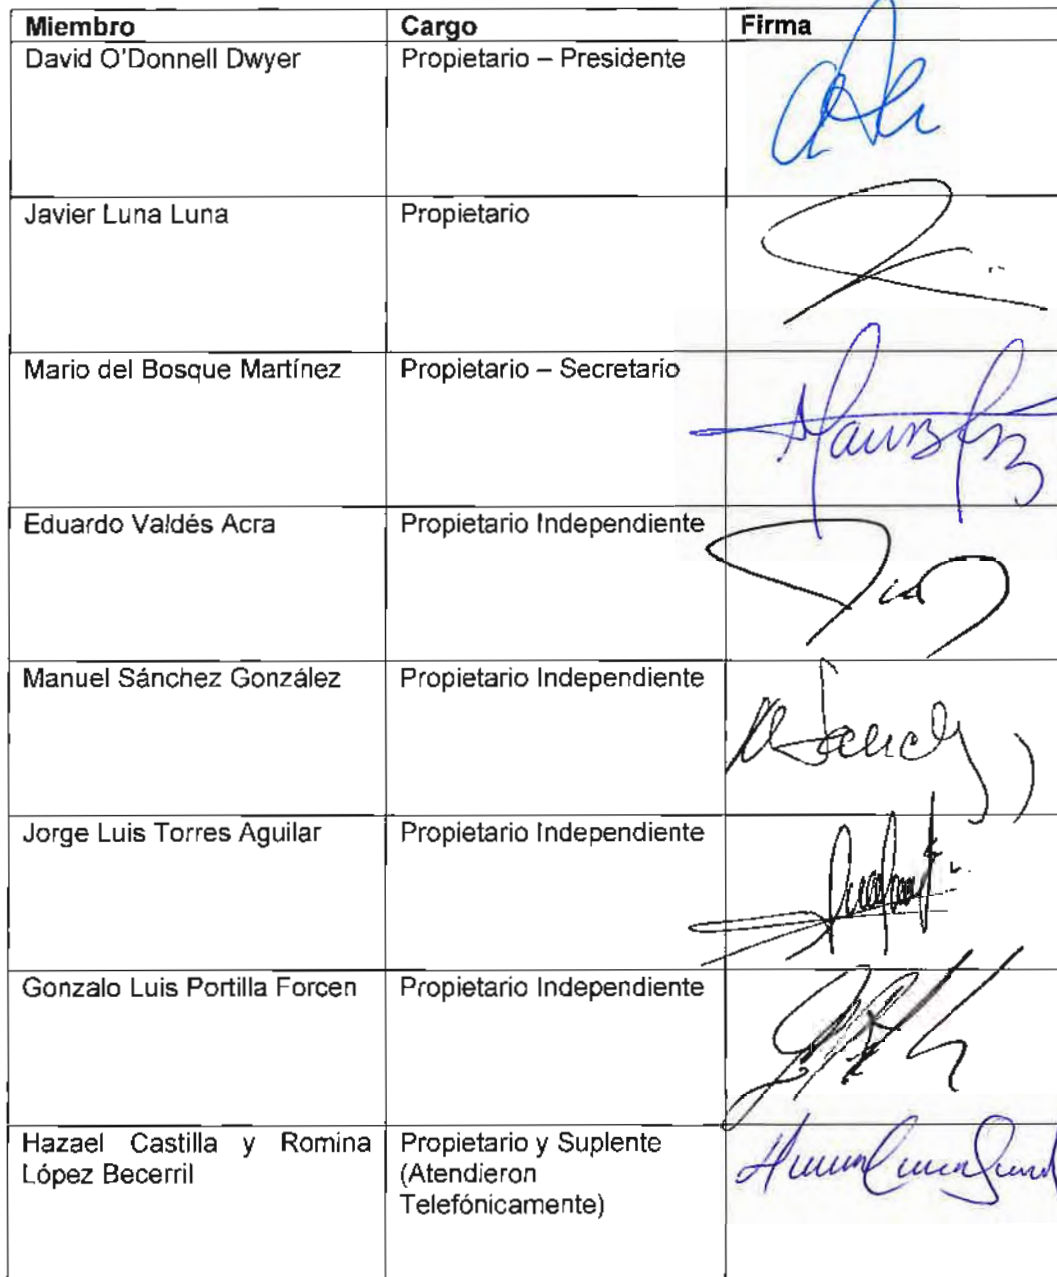 Miembro Cargo Firma
David O'Donnell Dwyer Propietario – Presidente
Javier Luna Luna Propietario
Mario del Bosque Martínez Propietario – Secretario
Eduardo Valdés Acra Propietario Independiente
Manuel Sánchez González Propietario Independiente
Jorge Luis Torres Aguilar Propietario Independiente
Gonzalo Luis Portilla Forcen Propietario Independiente
Hazael Castilla y Romina Propietario y Suplente
López Becerril (Atendieron
Telefónicamente)